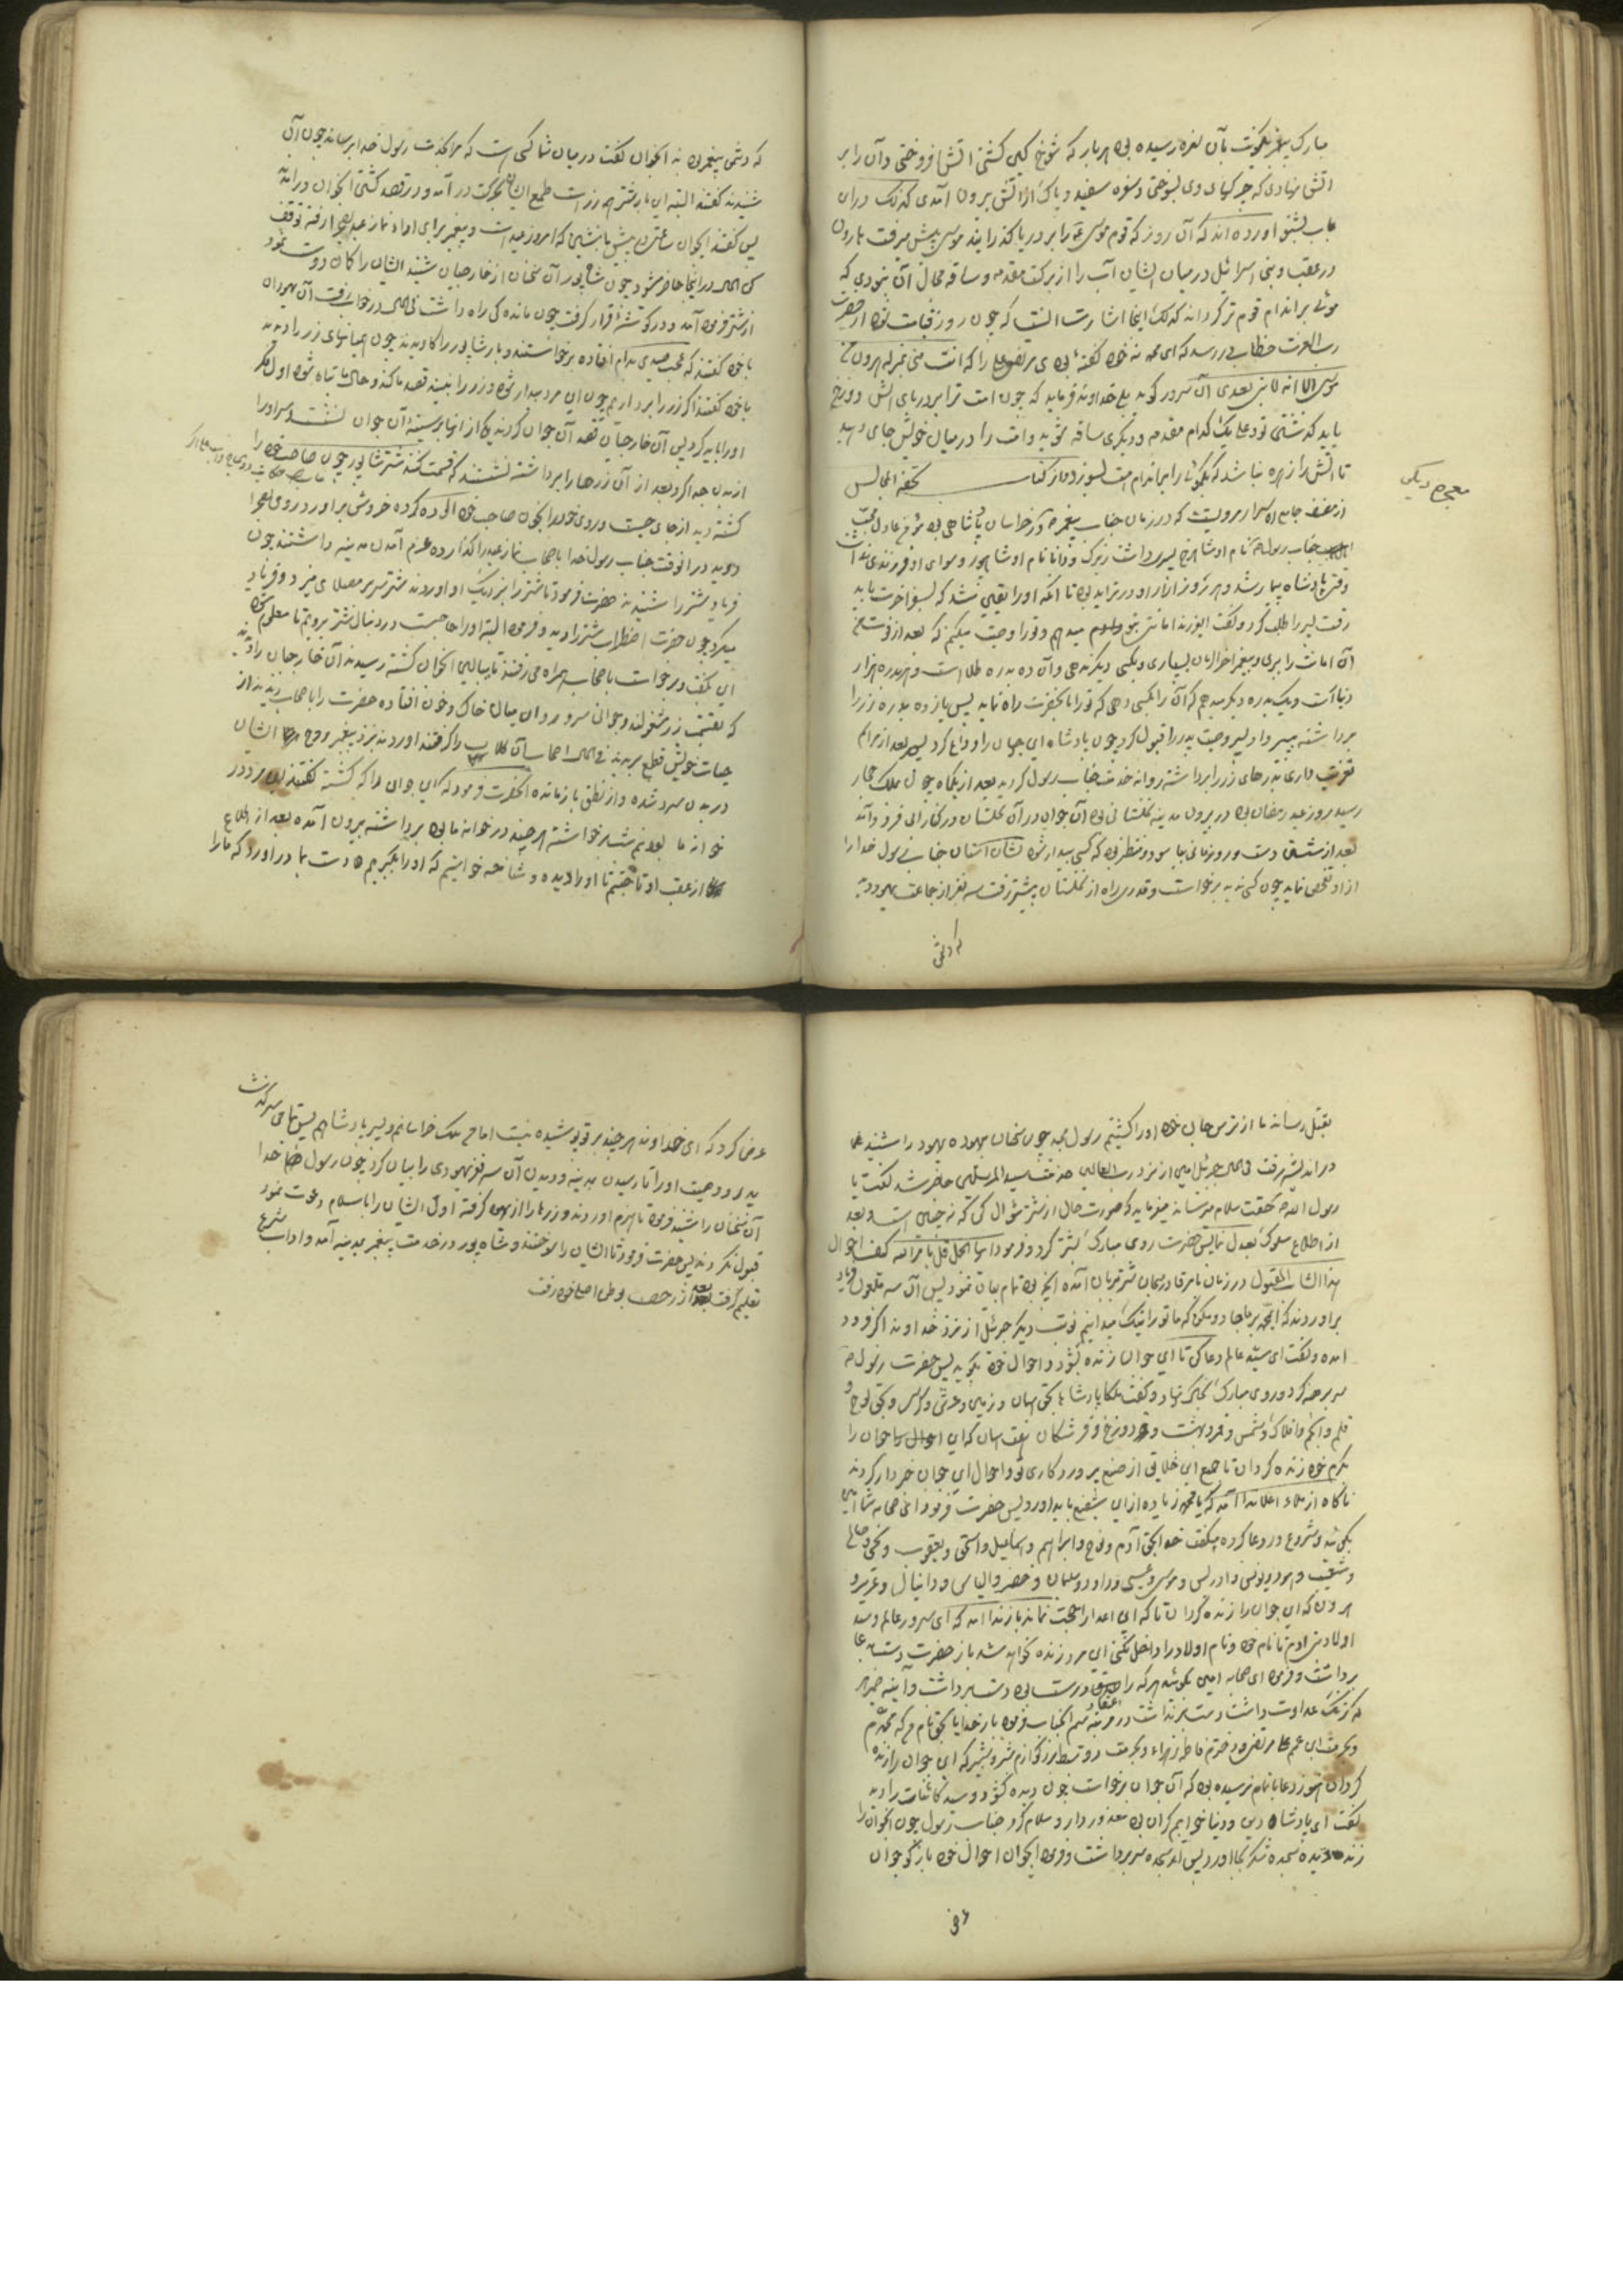 مبارک پیغمبر بآن نغره رسیده بود هر بار که شوخ کین کشتی آتش افروختی و آن را بر
آتش نهادی که چرکهای وی بسوختی و سفره سفید و پاک از آتش برون آمدی کذلک در این
باب بشنو آورده اند که آن روز که قوم موسی را بر دریا گذرانیدند موسی پیش میرفت هارون
در عقب و بنی اسرائیل در میان ایشان آب را از برکت مقدمه و ساقه مجال آن نبودی که
موئی بر اندام قوم تر گرداند کذلک اینجا اشارت است که چون روز قیامت شود از حضرت
رب العزت خطاب در رسد که ای محمد نه خود گفته بودی مرتضی علی را که انت منی بمنزله هرون من
موسی الا انه لا نبی بعدی آن سرور گوید بلی خداوند فرماید که چون امت ترا بر دریای آتش دوزخ
باید گذشتن تو و علی یک کدام مقدمه و دیگری ساقه شوید و امت را در میان خویش جای دهید
تا آتش را زهره نباشد که یکموی را از اندام امت بسوزد از کتاب تحفة المجالس
معجزه دیگر
از مصنف جامع الاسرار مرویست که در زمان جناب پیغمبر در خراسان پادشاهی بود مؤمن عادل محب
جناب رسول نام او شاهرخ پسری داشت زیرک و دانا نام او شاپور و سوای او فرزندی نداشت
وقتی پادشاه بیمار شد و هر روز آزار او در تزاید بود تا آنکه او را یقین شد که بسفر آخرت باید
رفت پسر را طلب کرد و گفت ای فرزند امانتی بتو میدهم و تو را وصیت میکنم که بعد از فوت من
آن امانت را ببری و به پیغمبر آخرالزمان بسپاری و بکسی دیگر ندهی و آن ده بدره طلا است و هر بدره هزار
دینار است و یک بدره دیگر میدهم که آن را بکسی دهی که تو را بآنحضرت راه نماید پس یازده بدره زر را
برداشته بپسر داد پسر وصیت پدر را قبول کرد چون پادشاه این جهان را وداع کرد پسر بعد از مراسم
تعزیت داری بدرهای زر را برداشته روانه خدمت جناب رسول گردید بعد از یکماه چون بملک حجاز
رسید روز عید رمضان بود در بیرون مدینه نخلستانی بود آن جوان در آن نخلستان در کناری فرود آمد
بعد از شستن دست و رو زمانی بیاسود و منتظر بود که کسی پیدا شود نشان آستان جناب رسول خدا را
از او تفحص نماید چون کسی ندید برخواست و قدری راه از نخلستان پیشتر رفت سه نفر از جماعت یهود دید
که دشمن
که دشمن پیغمبر بودند آنجوان گفت در میان شما کسی هست که مرا بخدمت رسول خدا برساند چون آن
شنیدند گفتند البته این بار شتر همه زر است طمع ایشان بحرکت در آمد و در قصد کشتن آنجوان در آمده
پس گفتند ای جوان ساعتی پیش ما بنشین که امروز عید است و پیغمبر برای اداء نماز عید بصحرا رفته توقف
کن الحال در اینجا حاضر میشود چون شاپور آن سخنان از خارجیان شنید ایشان را گمان دوست نمود
از شتر فرود آمد و در گوشه قرار گرفت چون مانده کی راه داشت فی الحال در خواب رفت آن یهودان
با خود گفتند که عجب صیدی بدام افتاده برخواستند و بار شاپور را کاویدند چون همیانهای زر را دیدند
با خود گفتند اگر زر را برداریم چون این مرد بیدار شود و زر را نبیند قصد ما کند و حال ما تباه شود اول فکر
او را باید کرد پس آن خارجیان قصد آن جوان کردند یکی از آنها بر سینه آن جوان نشست و سر او را
از بدن جدا کرد بعد از آن زرها را برداشته نشستند که قسمت کنند شتر شاپور چون صاحب خود را
کشته دید از جای جست و روی خود را بخون صاحب خود آلوده کرده خروش بر آورد و روی بصحرا
دوید در آنوقت جناب رسول خدا با اصحاب نماز عید را گذارده عزم آمدن مدینه داشتند چون
فریاد شتر را شنیدند حضرت فرمود تا شتر را بنزدیک او آوردند شتر سر بر مصلای میزد و فریاد
میکرد چون حضرت اضطراب شتر را دید فرمود البته او را حاجت است در دنبال شتر برویم تا معلوم شود
این بگفت و برخواست با اصحاب همراه می رفتند تا ببالین آنجوان کشته رسیدند آن خارجیان را دیدند
که بقسمت زر مشغولند و جوانی سر و روان میان خاک و خون افتاده حضرت را با اصحاب دیدند از
حیات خویش قطع بریدند فی الحال اصحاب آن کلاب را گرفتند آوردند بنزد پیغمبر روح ایشان
در بدن سرد شده و از نطق باز مانده آنحضرت فرمود که این جوان را که کشته گفتند این مرد دزد
خوانه ما بود نیم شب برخواسته هر چند در خوانه ما بود برداشته بیرون آمده بعد از اطلاع
از عقب او تاختیم تا او را دیده و شناخته خواستیم که او را بگیریم دست بما در آورد که ما را
بقتل رساند ما از ترس جان خود او را کشتیم رسول مجید چون سخنان بیهوده یهود را شنید
در اندیشه رفت فی الحال جبرئیل امین از نزد رب العالمین خدمت سید المرسلین حاضر شد گفت یا
رسول الله حقت سلام میرساند میفرماید که صورت حال از شتر سؤال کن که نه چنین است و بعد
از اطلاع سلوک بعدل نمایی حضرت روی مبارک بشتر کرد و فرمود ایها الجمل قل بامر الله کیف احوال
هذا الشاب المقتول در زمان بامر قادر سبحان شتر بزبان آمده آنچه بود تمام بیان نمود پس آن سه ملعون فریاد
بر آوردند که ای محمد بر ما جادو مکن که ما تو را نیک میدانیم نوبت دیگر جبرئیل از نزد خداوند اکبر فرود
آمده و گفت ای سید عالم دعا کن تا این جوان زنده شود و احوال خود بگوید پس حضرت رسول
سر برهنه کرد و روی مبارک بخاک نهاد و گفت ملکا پادشاها بحق آسمان و زمین و عرش و کرسی و بحق لوح و
قلم و انجم و افلاک و شمس و قمر و بهشت و دوزخ و فرشتگان هفت آسمان که این جوان را
بکرم خود زنده گردان تا جمیع این خلایق از صنع پروردگاری تو و احوال این جوان خبردار گردند
ناگاه از ملاء اعلا ندا آمد که یا محمد زیاده از این شفیع باید آورد پس حضرت فرمود ای صحابه شما آمین
بگوئید و شروع در دعا کرده میگفت خدایا بحق آدم و نوح و ابراهیم و اسماعیل و اسحق و یعقوب و یحیی و صالح
و شعیب و هود و یونس و ادریس و موسی و عیسی و داود و سلیمان و خضر و الیاس و دانیال و عزیر و
هرون که این جوان را زنده گردان تا که این اعدا را حجت نماند باز ندا آمد که ای سرور عالم و سید
اولاد بنی آدم تا نام خود و نام اولاد را داخل نکنی این مرد زنده نخواهد شد باز حضرت دست بدعا
برداشت و فرمود ای صحابه آمین بگوئید هر که را اعتقاد درست بود دست برداشت و آیینه ضمیر
که زنگ عداوت داشت دست برنداشت در مرتبه سیم آنجناب فرمود بار خدایا بحق نام من که محمدم
و بحرمت ابن عمم علی مرتضی و دخترم فاطمه زهراء و بحرمت دو سبط بزرگوارم شبر و شبیر که این جوان را زنده
گردان هنوز دعا باتمام نرسیده بود که آن جوان برخواست چون دیده گشود و سید کائنات را دید
گفت ای پادشاه دین و دنیا خوابم گران بود معذور دار و سلام کرد جناب رسول چون آنجوان را
زنده دید سجده شکر بجا آورد پس از سجده سر برداشت و فرمود ای جوان احوال خود بازگو جوان
عرض
عرض کرد که ای خداوند هر چند بر تو پوشیده نیست اما من ملک خراسانم و پسر پادشاهم پس تمامی سرگذشت
پدر و وصیت او را تا رسیدن مدینه و دیدن آن سه نفر یهودی را بیان کرد چون رسول خدا
آن سخنان را شنید فرمود تا هیزم آوردند و زرها را از یهود گرفته اول ایشان را باسلام دعوت نمود
قبول نکردند پس حضرت فرمود تا ایشان را سوختند و شاهپور در خدمت پیغمبر بمدینه آمد و آداب شرع
تعلیم گرفت بعد از رخصت بوطن اصلی خود رفت